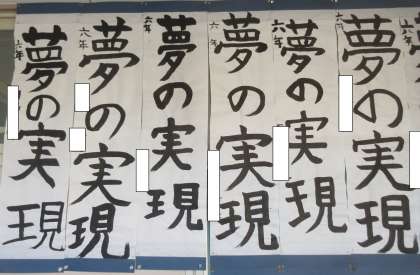 六年
夢の実現
六年
夢の実現
六年
夢の実現
六年
夢の実現
六年
夢の実現
六年
夢の実現
六年